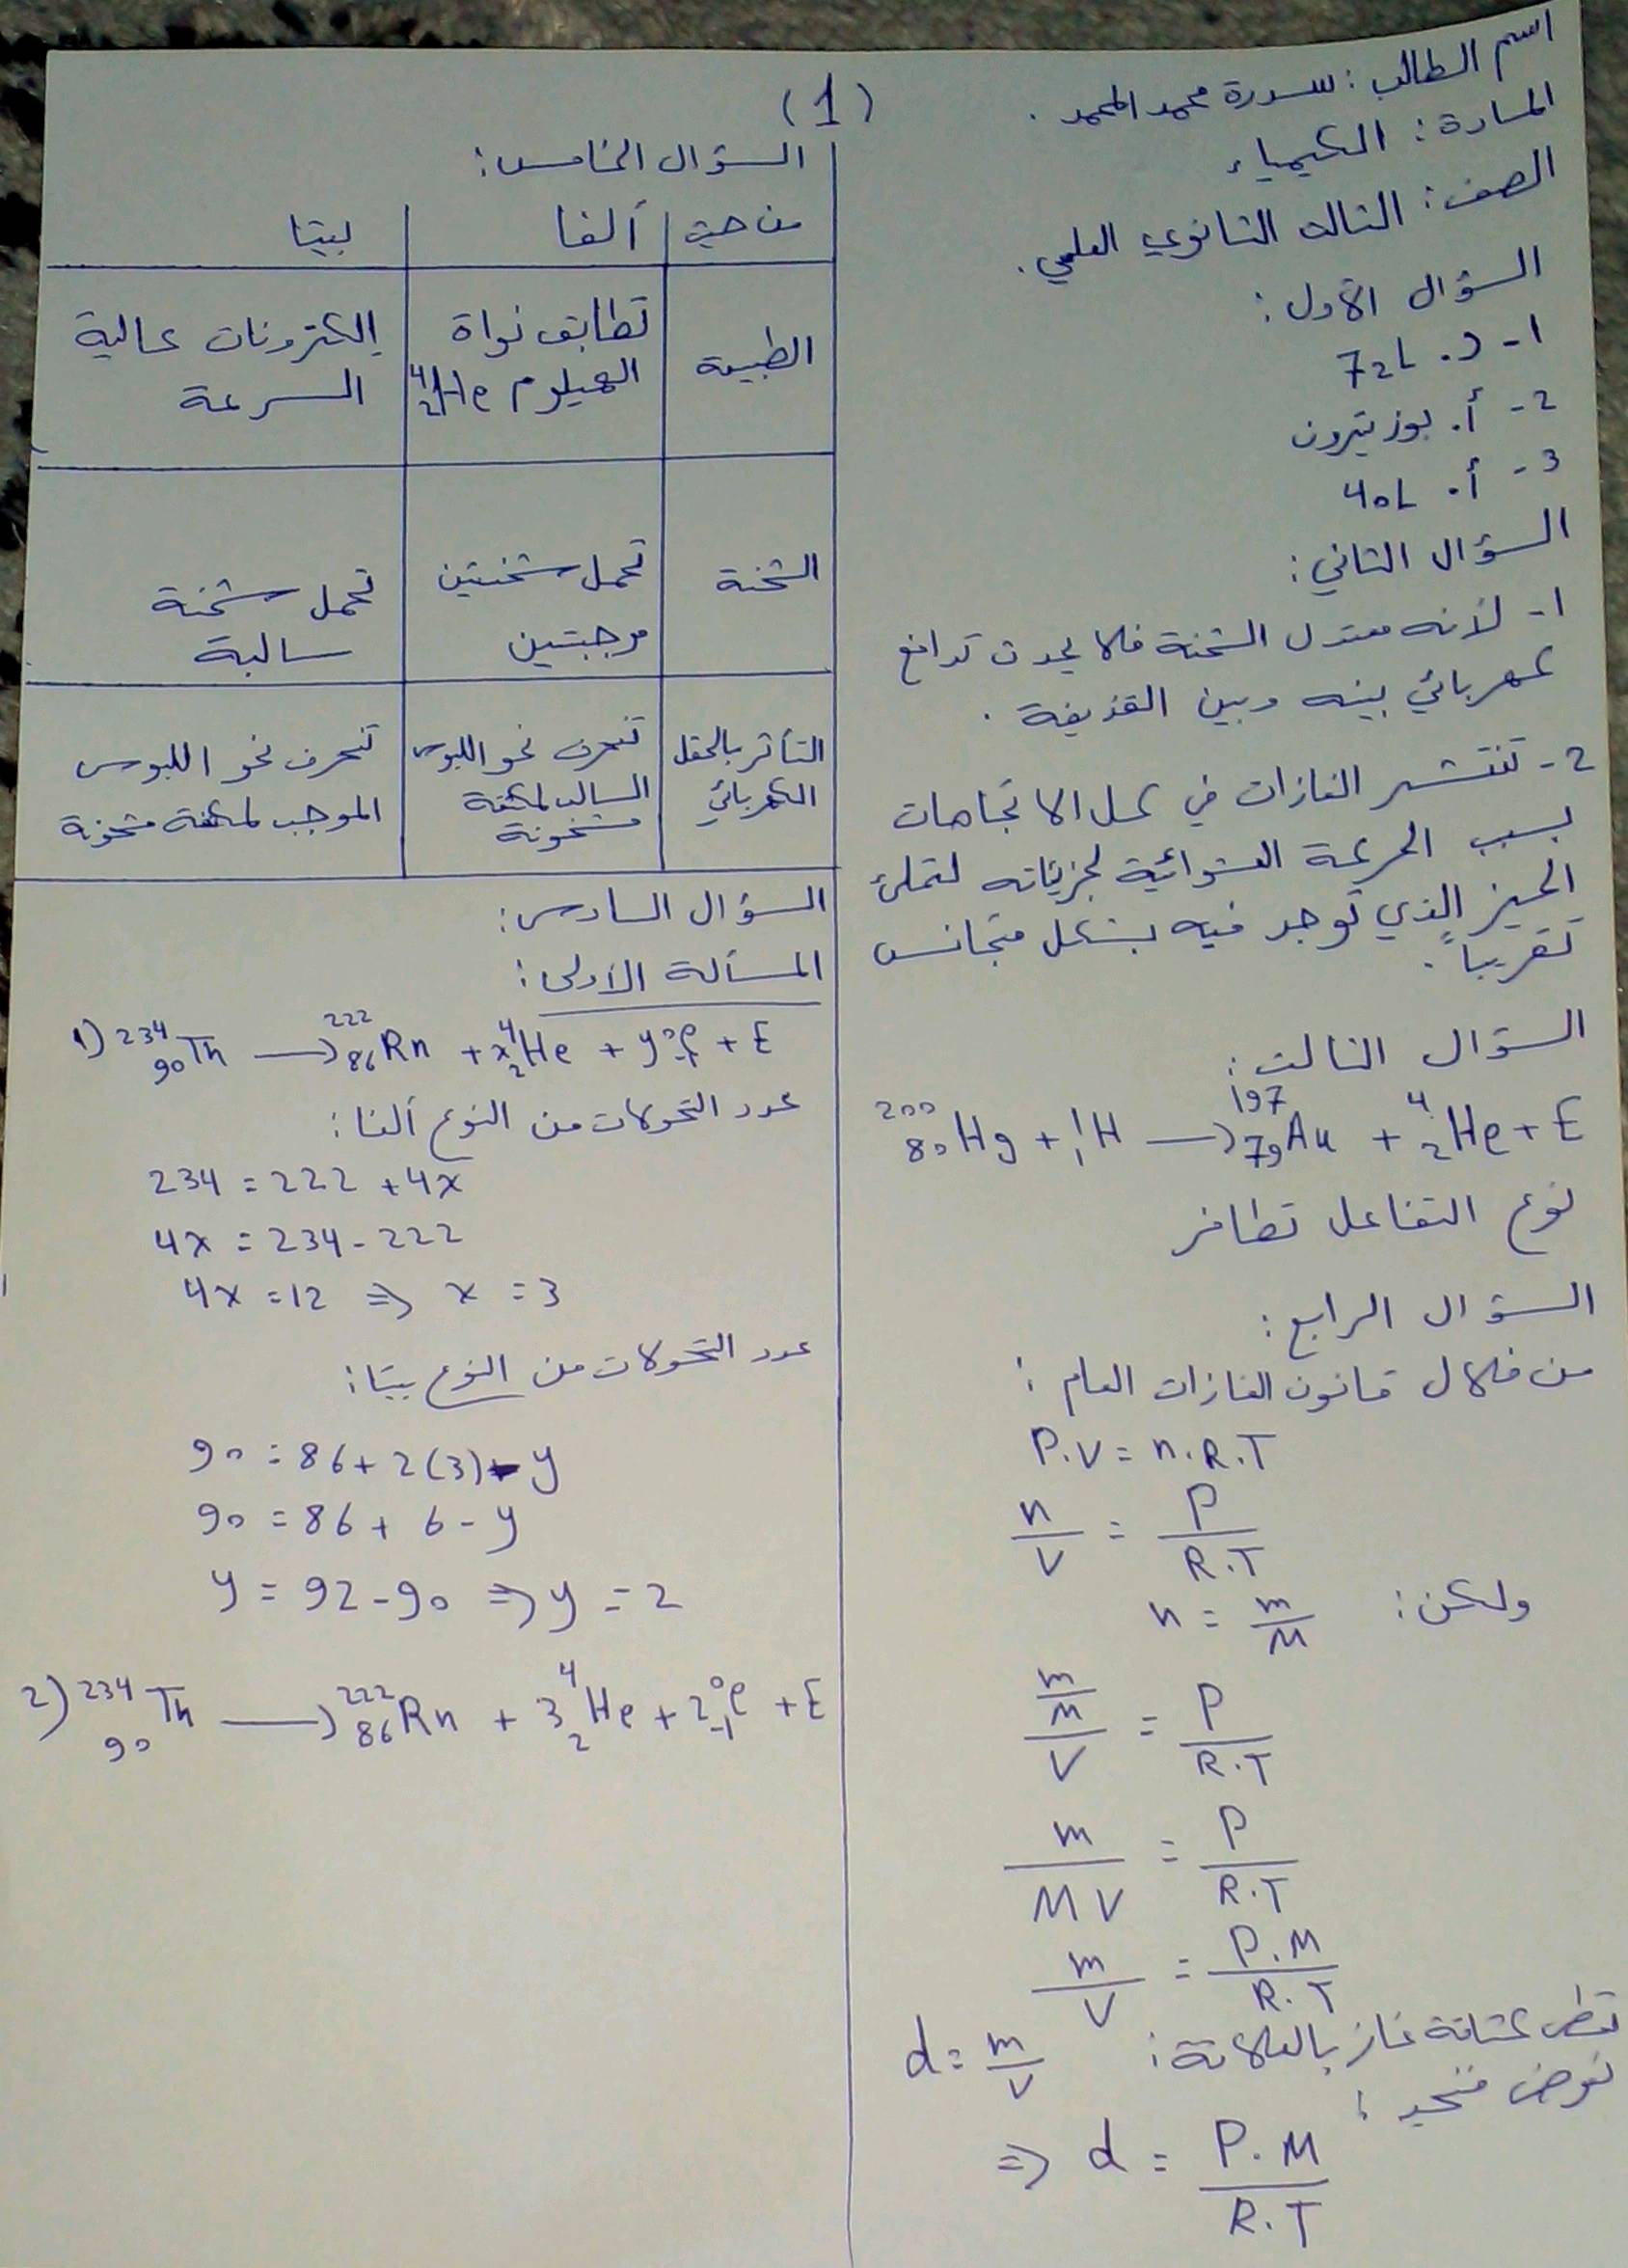 اسم الطالب: سدرة محمد المحمد.
المادة: الكيمياء
الصف: الثالث الثانوي العلمي.
السؤال الأول:
1- د. 72L
2- أ. بوزيترون
3- أ. 40L
السؤال الثاني:
1- لأنه معتدل الشحنة فلا يحدث تدافع
كهربائي بينه وبين القذيفة.
2- تنتشر الغازات في كل الاتجاهات
بسبب الحركة العشوائية لجزيئاته لتملئ
الحيز الذي توجد فيه بشكل متجانس
تقريباً.
السؤال الثالث:
²⁰⁰₈₀Hg + ¹₁H → ¹⁹⁷₇₉Au + ⁴₂He + E
نوع التفاعل تطافر
السؤال الرابع:
من خلال قانون الغازات العام:
P.V = n.R.T
n/V = P/R.T
ولكن: n = m/M
(m/M)/V = P/R.T
m/MV = P/R.T
m/V = P.M/R.T
تعطى كثافة غاز بالعلاقة: d = m/V
نعوض فنجد:
⇒ d = P.M/R.T
(1)
السؤال الخامس:
من حيث | ألفا | بيتا
الطبيعة | تطابق نواة الهيليوم ⁴₂He | إلكترونات عالية السرعة
الشحنة | تحمل شحنتين موجبتين | تحمل شحنة سالبة
التأثر بالحقل الكهربائي | تنحرف نحو اللبوس السالب لمكثفة مشحونة | تنحرف نحو اللبوس الموجب لمكثفة مشحونة
السؤال السادس:
المسألة الأولى:
1) ²³⁴₉₀Th → ²²²₈₆Rn + x⁴₂He + y⁰₋₁e + E
عدد التحولات من النوع ألفا:
234 = 222 + 4x
4x = 234 - 222
4x = 12 ⇒ x = 3
عدد التحولات من النوع بيتا:
90 = 86 + 2(3) - y
90 = 86 + 6 - y
y = 92 - 90 ⇒ y = 2
2) ²³⁴₉₀Th → ²²²₈₆Rn + 3⁴₂He + 2⁰₋₁e + E